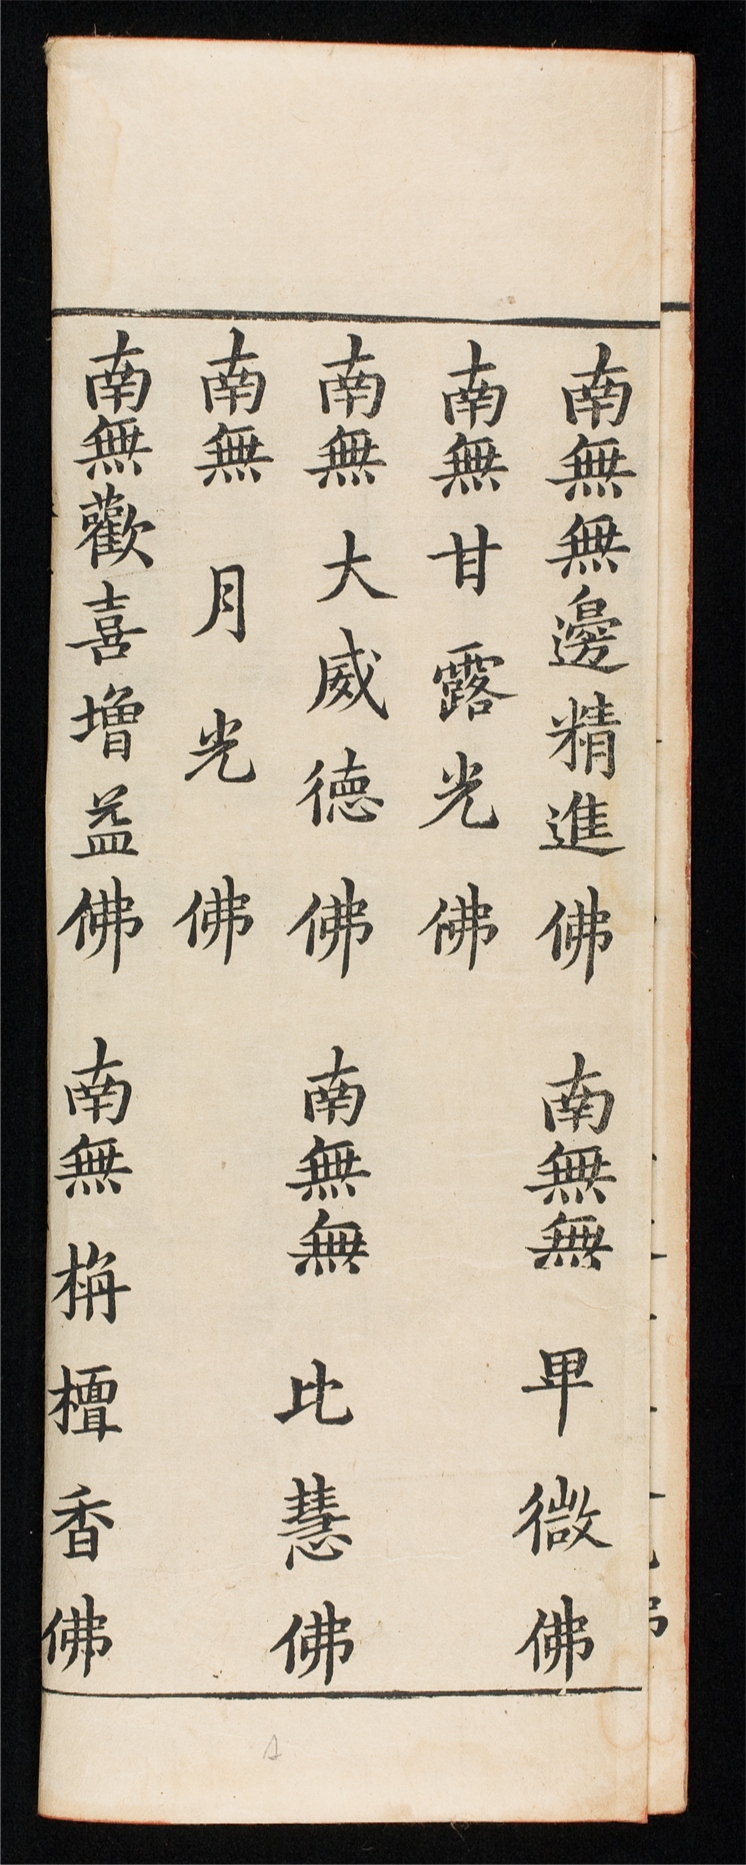 南無無邊精進佛　南無無甲微佛
南無甘露光佛
南無大威德佛　南無無比慧佛
南無月光佛
南無歡喜増益佛　南無栴檀香佛